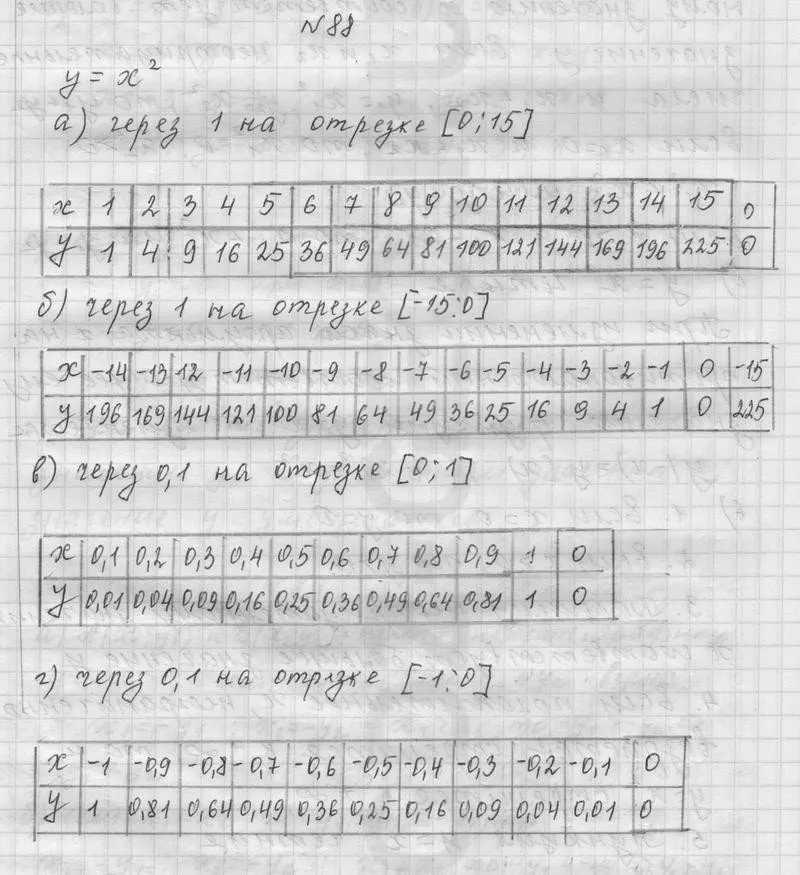 №88
y = x²
а) через 1 на отрезке [0;15]
x 1 2 3 4 5 6 7 8 9 10 11 12 13 14 15 0
y 1 4 9 16 25 36 49 64 81 100 121 144 169 196 225 0
б) через 1 на отрезке [-15;0]
x -14 -13 12 -11 -10 -9 -8 -7 -6 -5 -4 -3 -2 -1 0 -15
y 196 169 144 121 100 81 64 49 36 25 16 9 4 1 0 225
в) через 0,1 на отрезке [0;1]
x 0,1 0,2 0,3 0,4 0,5 0,6 0,7 0,8 0,9 1 0
y 0,01 0,04 0,09 0,16 0,25 0,36 0,49 0,64 0,81 1 0
г) через 0,1 на отрезке [-1;0]
x -1 -0,9 -0,8 -0,7 -0,6 -0,5 -0,4 -0,3 -0,2 -0,1 0
y 1 0,81 0,64 0,49 0,36 0,25 0,16 0,09 0,04 0,01 0